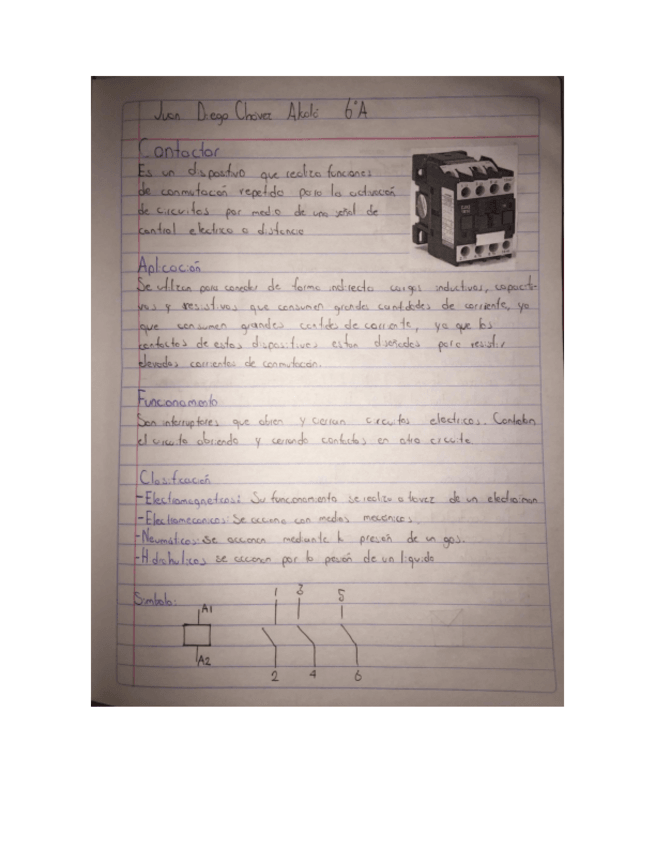 Juan Diego Chávez Alcalá 6°A
Contactor
Es un dispositivo que realiza funciones
de conmutación repetido para la activación
de circuitos por medio de una señal de
control electrico a distancia
Aplicación
Se utilizan para conectar de forma indirecta cargas inductivas, capaciti-
vas y resistivas que consumen grandes cantidades de corriente, ya
que consumen grandes de corriente, ya que los
contactos de estos dispositivos estan diseñados para resistir
elevadas corrientes de conmutación.
Funcionamento
Son interruptores que abren y cierran circuitos electricos. Controlan
el circuito abriendo y cerrando contactos en otro circuito.
Clasificación
-Electromagneticos: Su funcionamento se realiza a travez de un electroiman
-Electromecanicos: Se acciona con medios mecánicos.
-Neumáticos: Se accionan mediante la presión de un gas.
-Hidrahulicos se accionan por la presión de un liquido
Simbolo:
A1
A2
1 3 5
2 4 6